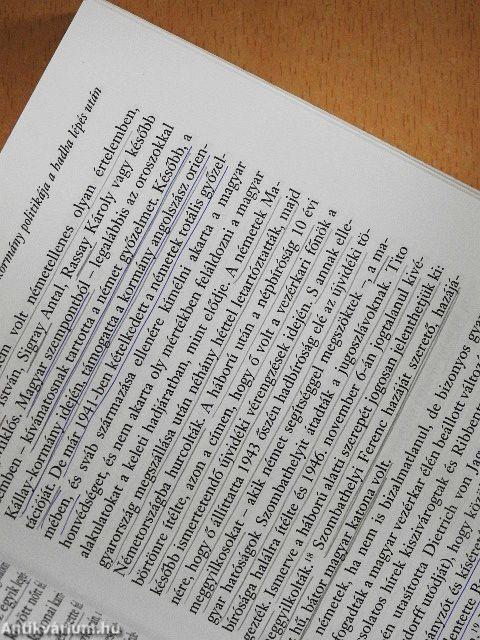 kormány politikája a hadba lépés után
volt németellenes olyan értelemben,
István, Sigray Antal, Rassay Károly vagy később
Magyar szempontból – legalábbis az oroszokkal
ben – kívánatosnak tartotta a német győzelmet. Később, a
Kállay-kormány idején, támogatta a kormány angolszász orien-
tációját. De már 1941-ben kételkedett a németek totális győzel-
mében, és sváb származása ellenére kímélni akarta a magyar
honvédséget, és nem akarta oly mértékben feláldozni a magyar
alakulatokat a keleti hadjáratban, mint elődje. A németek Ma-
gyarország megszállása után néhány héttel letartóztatták, majd
Németországba hurcolták. A háború után a népbíróság 10 évi
börtönre ítélte, azon a címen, hogy ő volt a vezérkari főnök a
később ismertetendő újvidéki vérengzések idején. S annak elle-
nére, hogy ő állíttatta 1943 őszén hadbíróság elé az újvidéki tö-
meggyilkosokat – akik német segítséggel megszöktek – a ma-
gyar hatóságok Szombathelyit átadták a jugoszlávoknak. Tito
bírósága halálra ítélte és 1946. november 6-án jogtalanul kivé-
gezték. Ismerve a háború alatti szerepét jogosan jelenthetjük ki:
Szombathelyi Ferenc hazáját szerető, hazájá-
bátor magyar katona volt.
németek, ha nem is bizalmatlanul, de bizonyos
fogadták a magyar vezérkar élén beállott változást
hírek kiszivárogtak és Ribbentrop
utasította Dietrich von Jagow
utódját) hogy
Antikvárium.hu